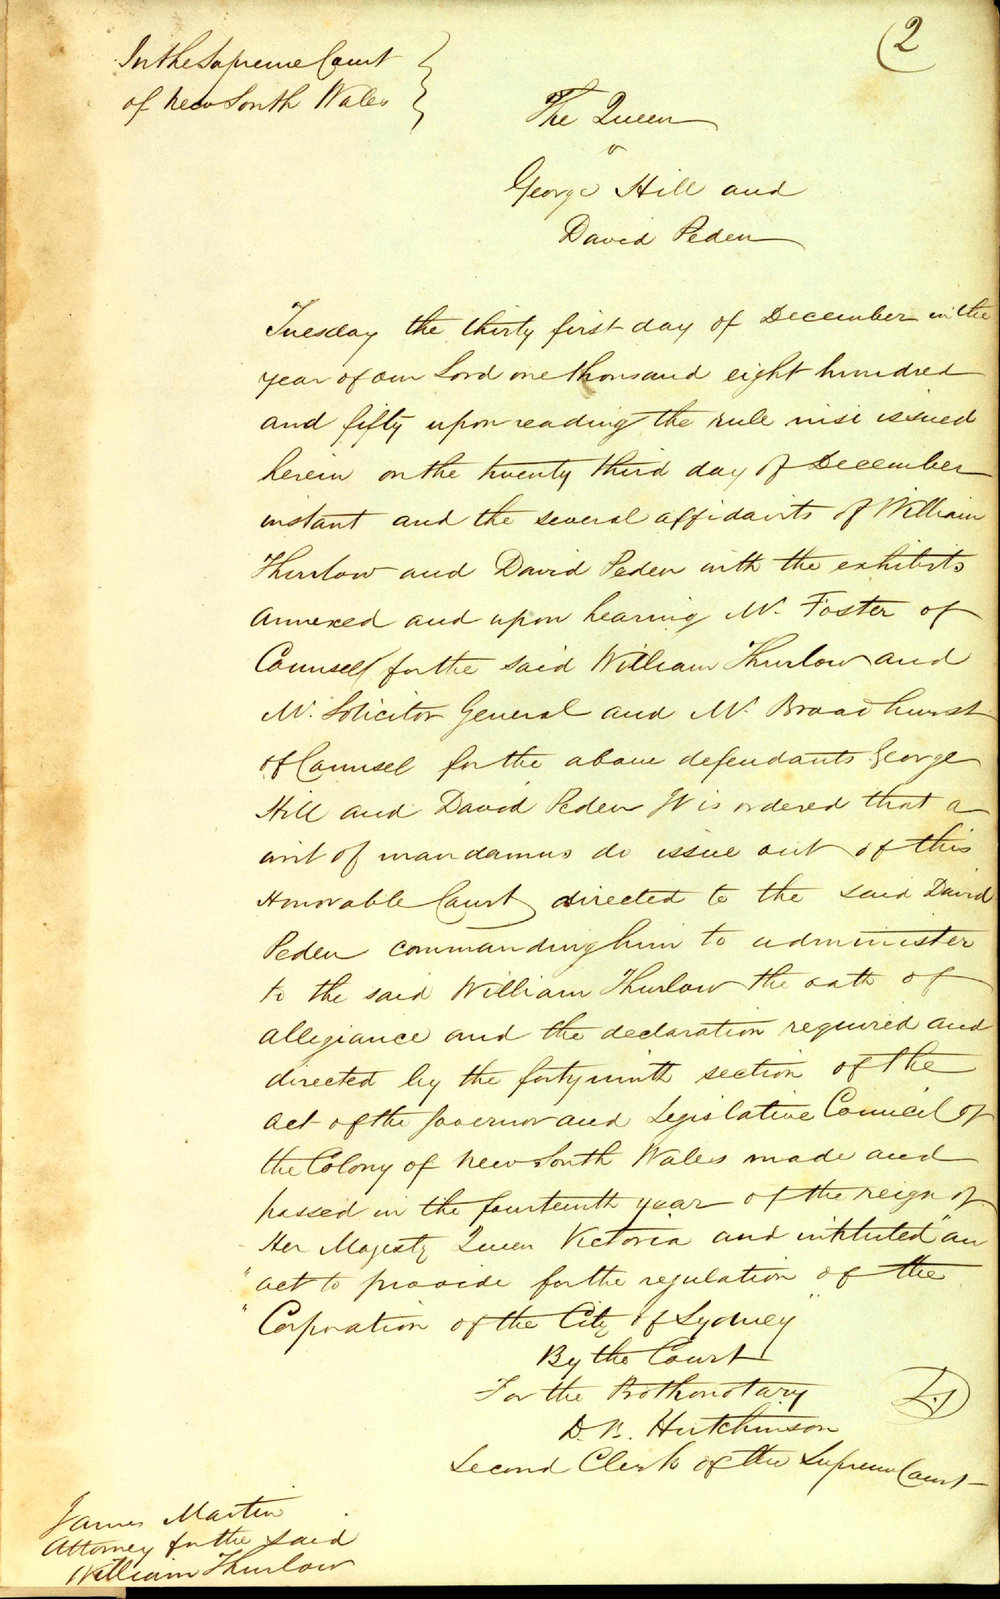 2
In the Supreme Court
of New South Wales
The Queen
v
George Hill and
David Peden
Tuesday the thirty first day of December in the
year of our Lord one thousand eight hundred
and fifty upon reading the rule nisi issued
herein on the twenty third day of December
instant and the several affidavits of William
Thurlow and David Peden with the exhibits
annexed and upon hearing Mr. Foster of
Counsel for the said William Thurlow and
Mr. Solicitor General and Mr. Broadhurst
of Counsel for the above defendants George
Hill and David Peden It is ordered that a
writ of mandamus do issue out of this
Honorable Court directed to the said David
Peden commanding him to administer
to the said William Thurlow the oath of
allegiance and the declaration required and
directed by the forty ninth section of the
Act of the Governor and Legislative Council of
the Colony of New South Wales made and
passed in the fourteenth year of the reign of
Her Majesty Queen Victoria and intituled "an
"act to provide for the regulation of the
"Corporation of the City of Sydney"
By the Court
For the Prothonotary
D. B. Hutchinson
Second Clerk of the Supreme Court
L.S
James Martin
Attorney for the said
William Thurlow